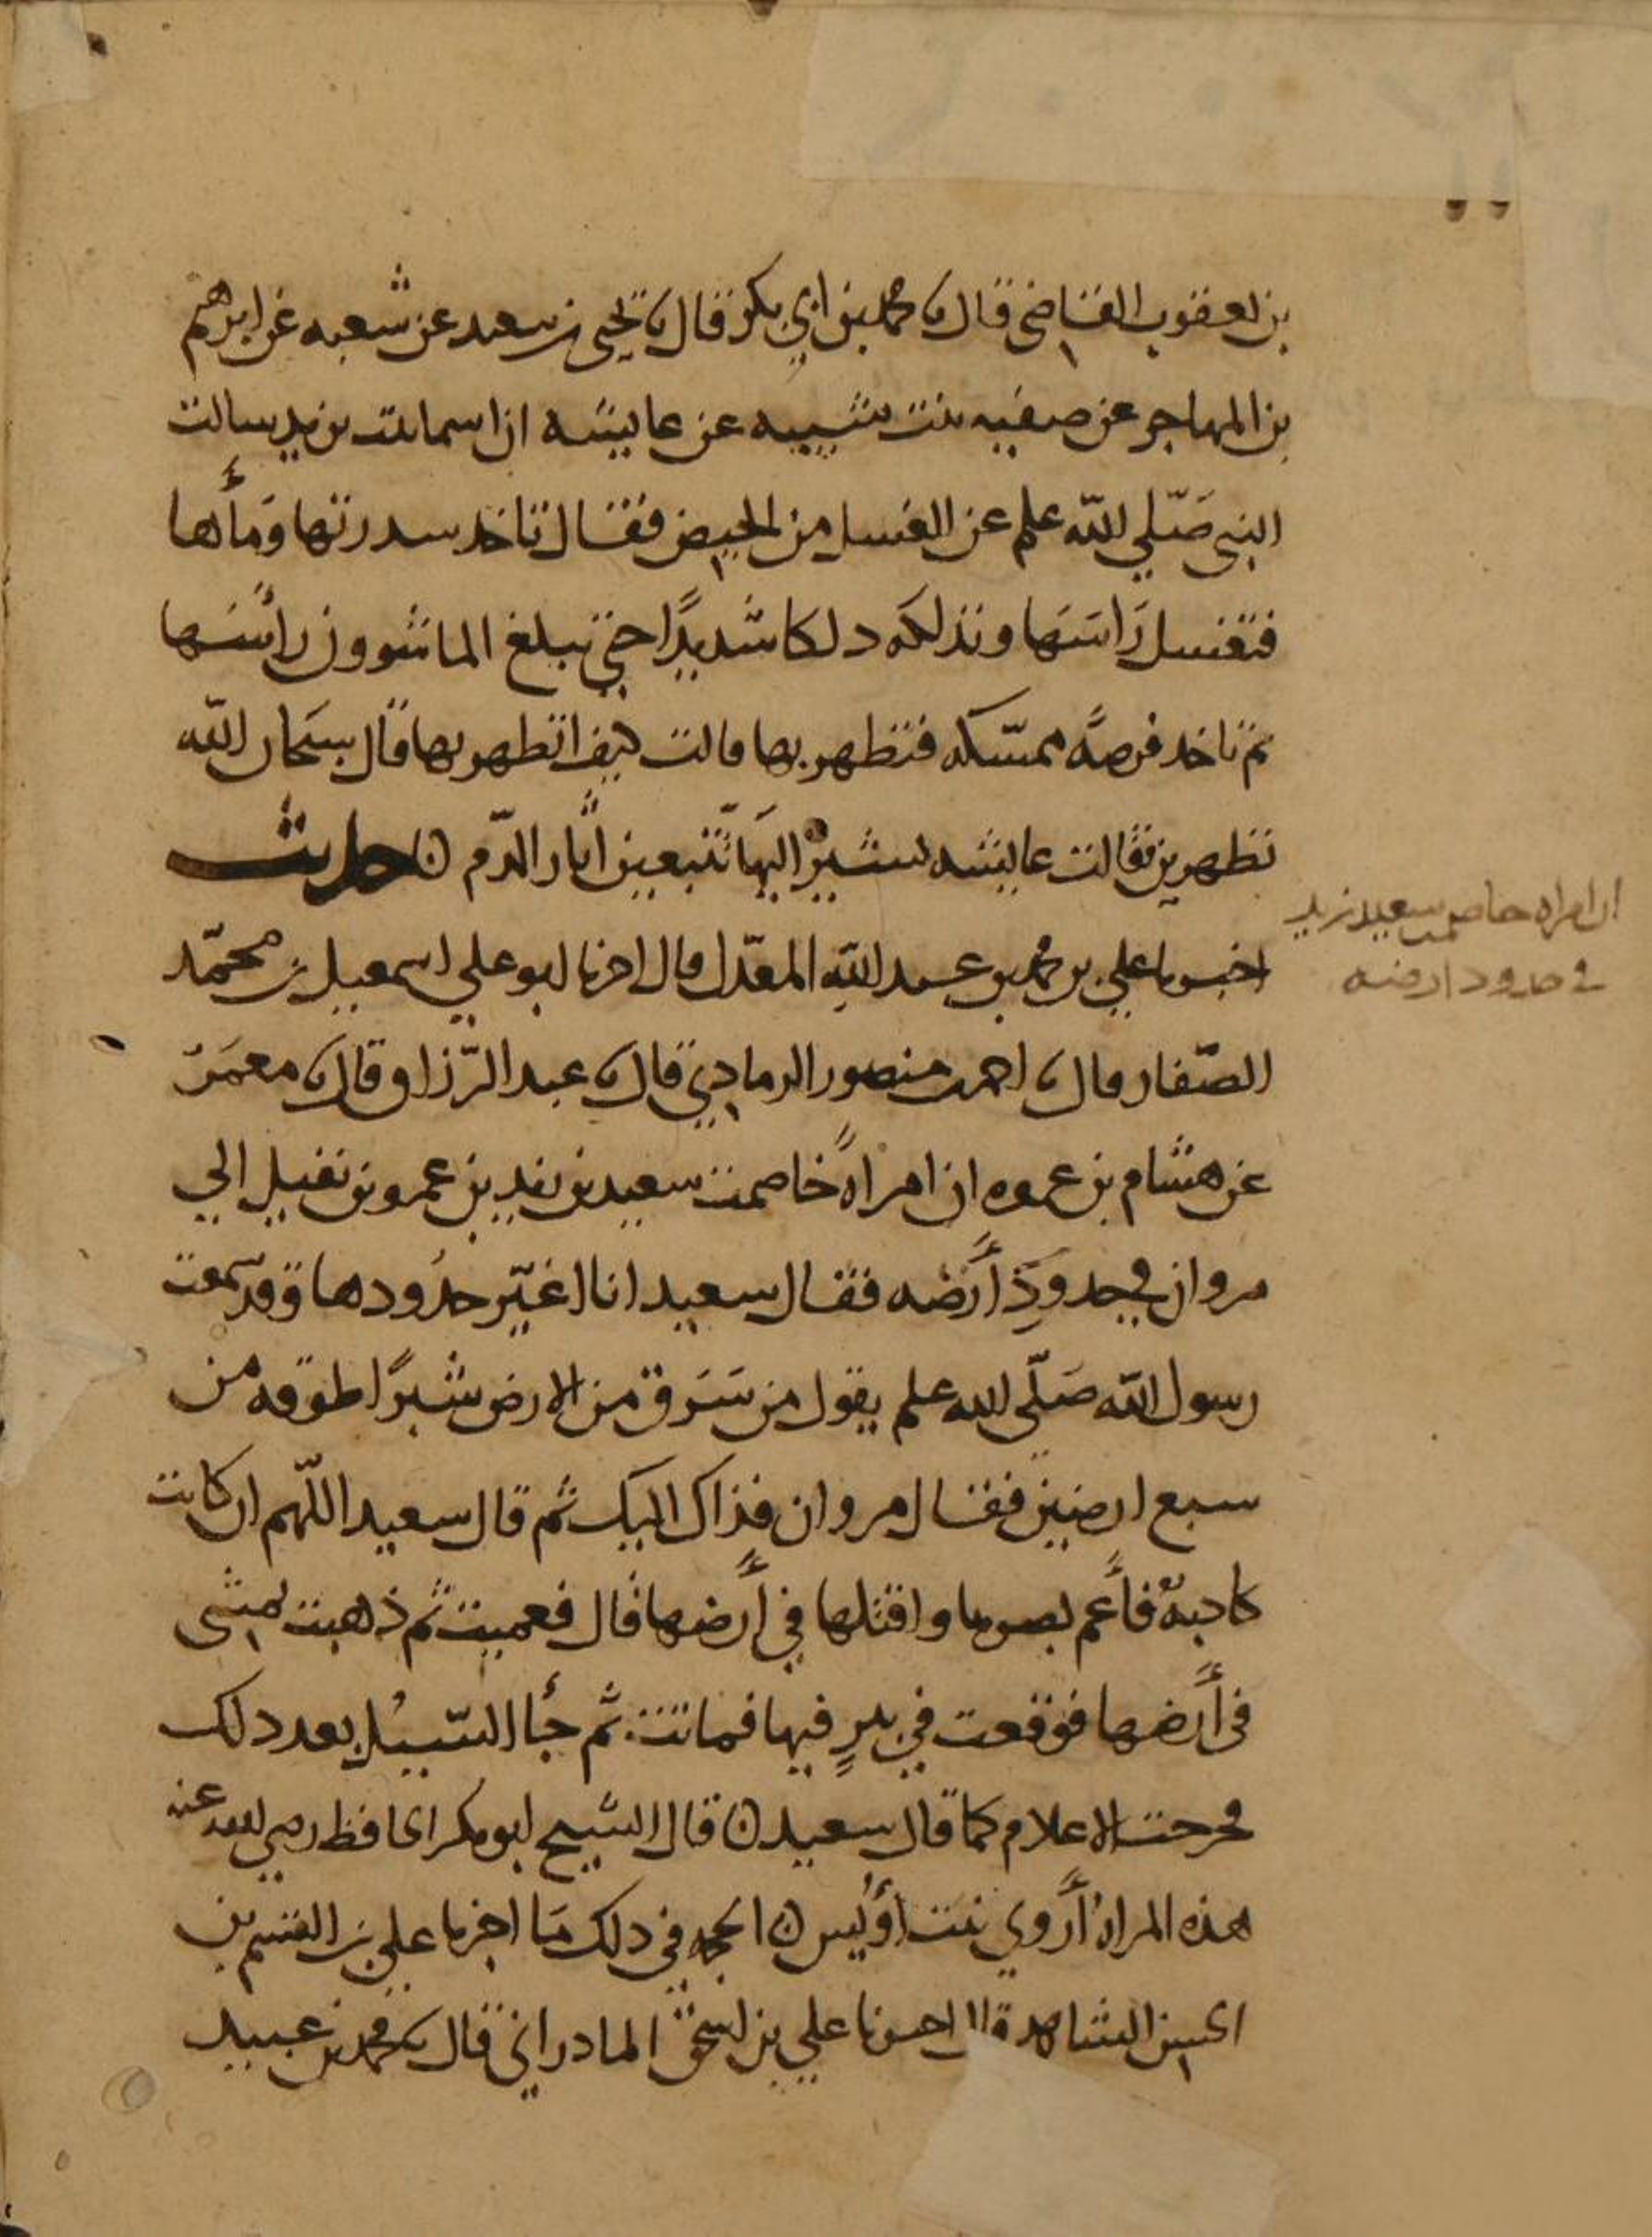 بن يعقوب القاضى قال نا محمد بن ابي بكر قال نا يحيى بن سعيد عن شعبه عن ابرهيم
بن المهاجر عن صفيه بنت شيبه عن عايشه ان اسما بنت يزيد سالت
النبي صَلّي الله علم عن الغسل من الحيض فقال تاخد سدرتها وَمأها
فتغسل رَاسَها وتدلكه دلكا شديدًا حتي تبلغ الما شوون رأسَها
ثم تاخد فرصةً ممسّكه فتطهر بها قالت كيف اتطهر بها قال سبحان الله
تطهرين فقالت عايشه تشير اليها تتّبعين اثار الدّم ٥ حديث
اخبرنا علي بن محمد بن عبد الله المعدّل قال اخبرنا ابو علي اسمعيل بن محمّد
الصّفار قال نا احمد بن منصور الرمادي قال نا عبد الرّزاق قال نا معمَرٌ
عن هشام بن عروه ان امراةً خاصمت سعيد بن زيد بن عمرو بن نفيل الي
مروان في حدودِ أَرضه فقال سعيد انا اغيّر حدُودها وَقد سمعت
رسول الله صَلّى الله علم يقول من سَرَق من الارض شبرًا طوقه من
سبع ارضين فقال مروان فذاك اليك ثم قال سعيد اللّهم ان كانت
كادبةٌ فأعم بصرها واقتلها في أَرضها قال فعميت ثم ذهبت تمشى
فى أَرضها فوقعت في بيرٍ فيها فماتت ثم جأ السّيْل بعد دلك
فخرحت الاعلام كما قال سعيد ٥ قال الشيخ ابو بكر الحافظ رضي الله عنه
هذه المراةُ أَروي بنت أُوَيس ٥ الحجه في دلك مَا اخبرنا علي بن القسم بن
الحسن الشاهد قال اخبرنا علي بن اسحق المادراني قال نا محمد بن عبيد
ان امراه خاصمت سعيد بن زيد
في حدود ارضه